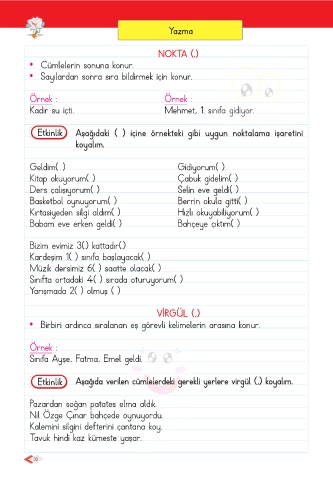 Yazma
NOKTA (.)
• Cümlelerin sonuna konur.
• Sayılardan sonra sıra bildirmek için konur.
Örnek :
Kadir su içti.
Örnek :
Mehmet, 1. sınıfa gidiyor.
Etkinlik Aşağıdaki ( ) içine örnekteki gibi uygun noktalama işaretini
koyalım.
Geldim( )
Kitap okuyorum( )
Ders çalışıyorum( )
Basketbol oynuyorum( )
Kırtasiyeden silgi aldım( )
Babam eve erken geldi( )
Gidiyorum( )
Çabuk gidelim( )
Selin eve geldi( )
Berrin okula gitti( )
Hızlı okuyabiliyorum( )
Bahçeye çıktım( )
Bizim evimiz 3() kattadır()
Kardeşim 1( ) sınıfa başlayacak( )
Müzik dersimiz 6( ) saatte olacak( )
Sınıfta ortadaki 4( ) sırada oturuyorum( )
Yarışmada 2( ) olmuş ( )
VİRGÜL (,)
• Birbiri ardınca sıralanan eş görevli kelimelerin arasına konur.
Örnek :
Sınıfa Ayşe, Fatma, Emel geldi.
Etkinlik Aşağıda verilen cümlelerdeki gerekli yerlere virgül (,) koyalım.
Pazardan soğan patates elma aldık.
Nil Özge Çınar bahçede oynuyordu.
Kalemini silgini defterini çantana koy.
Tavuk hindi kaz kümeste yaşar.